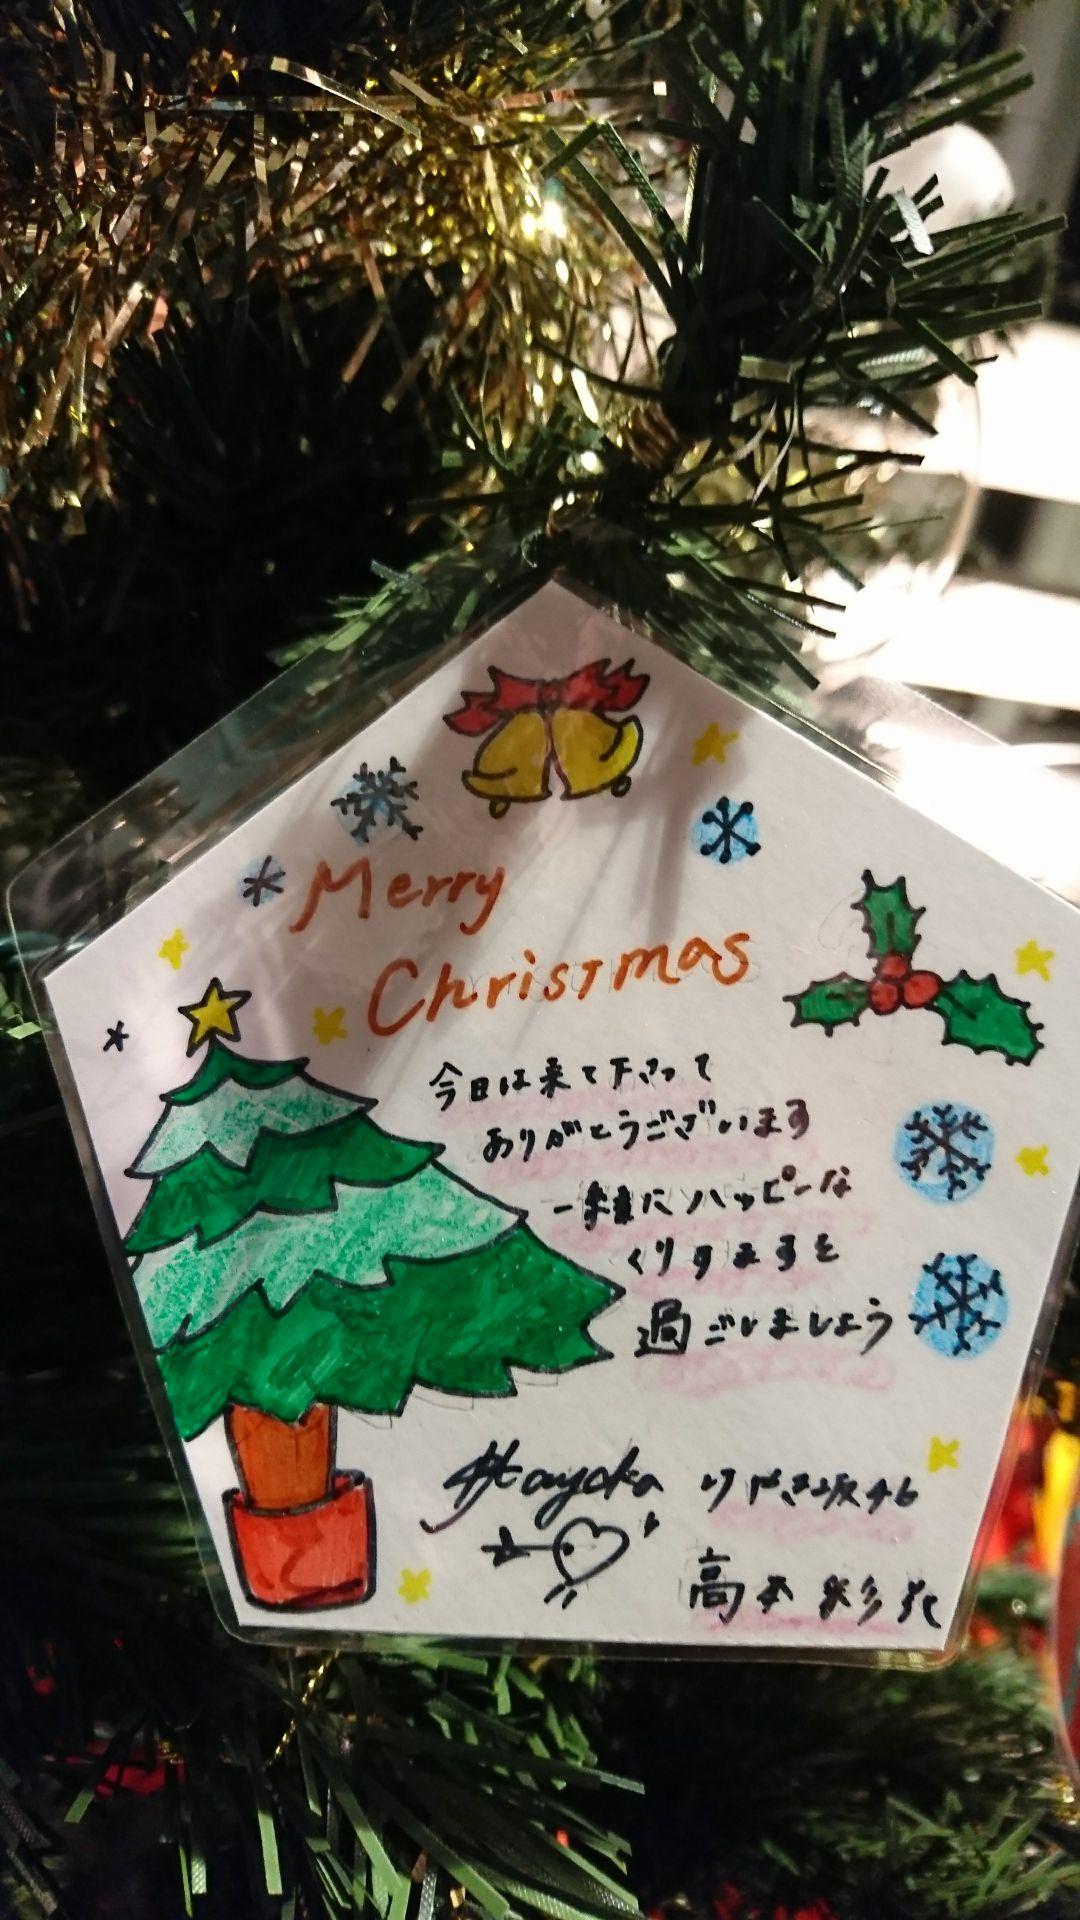 Merry
Christmas
今日は来て下さって
ありがとうございます
一緒にハッピーな
くりすますを
過ごしましょう
ayaka
けやき坂46
高本彩花